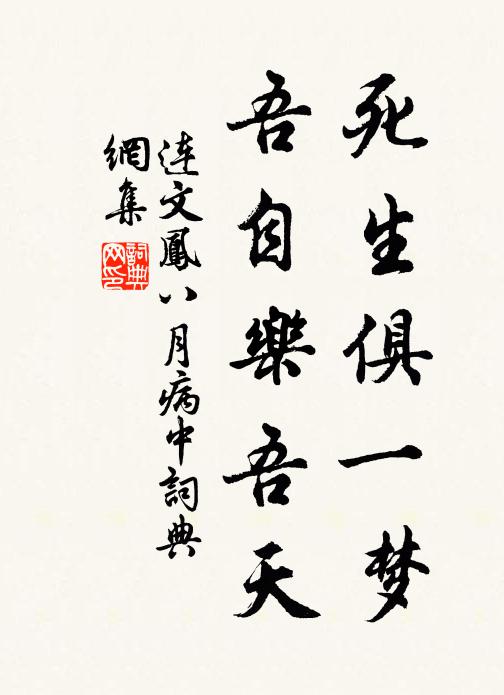 死生俱一梦
吾自樂吾天
连文鳳八月病中詞典
網集
詞典网印